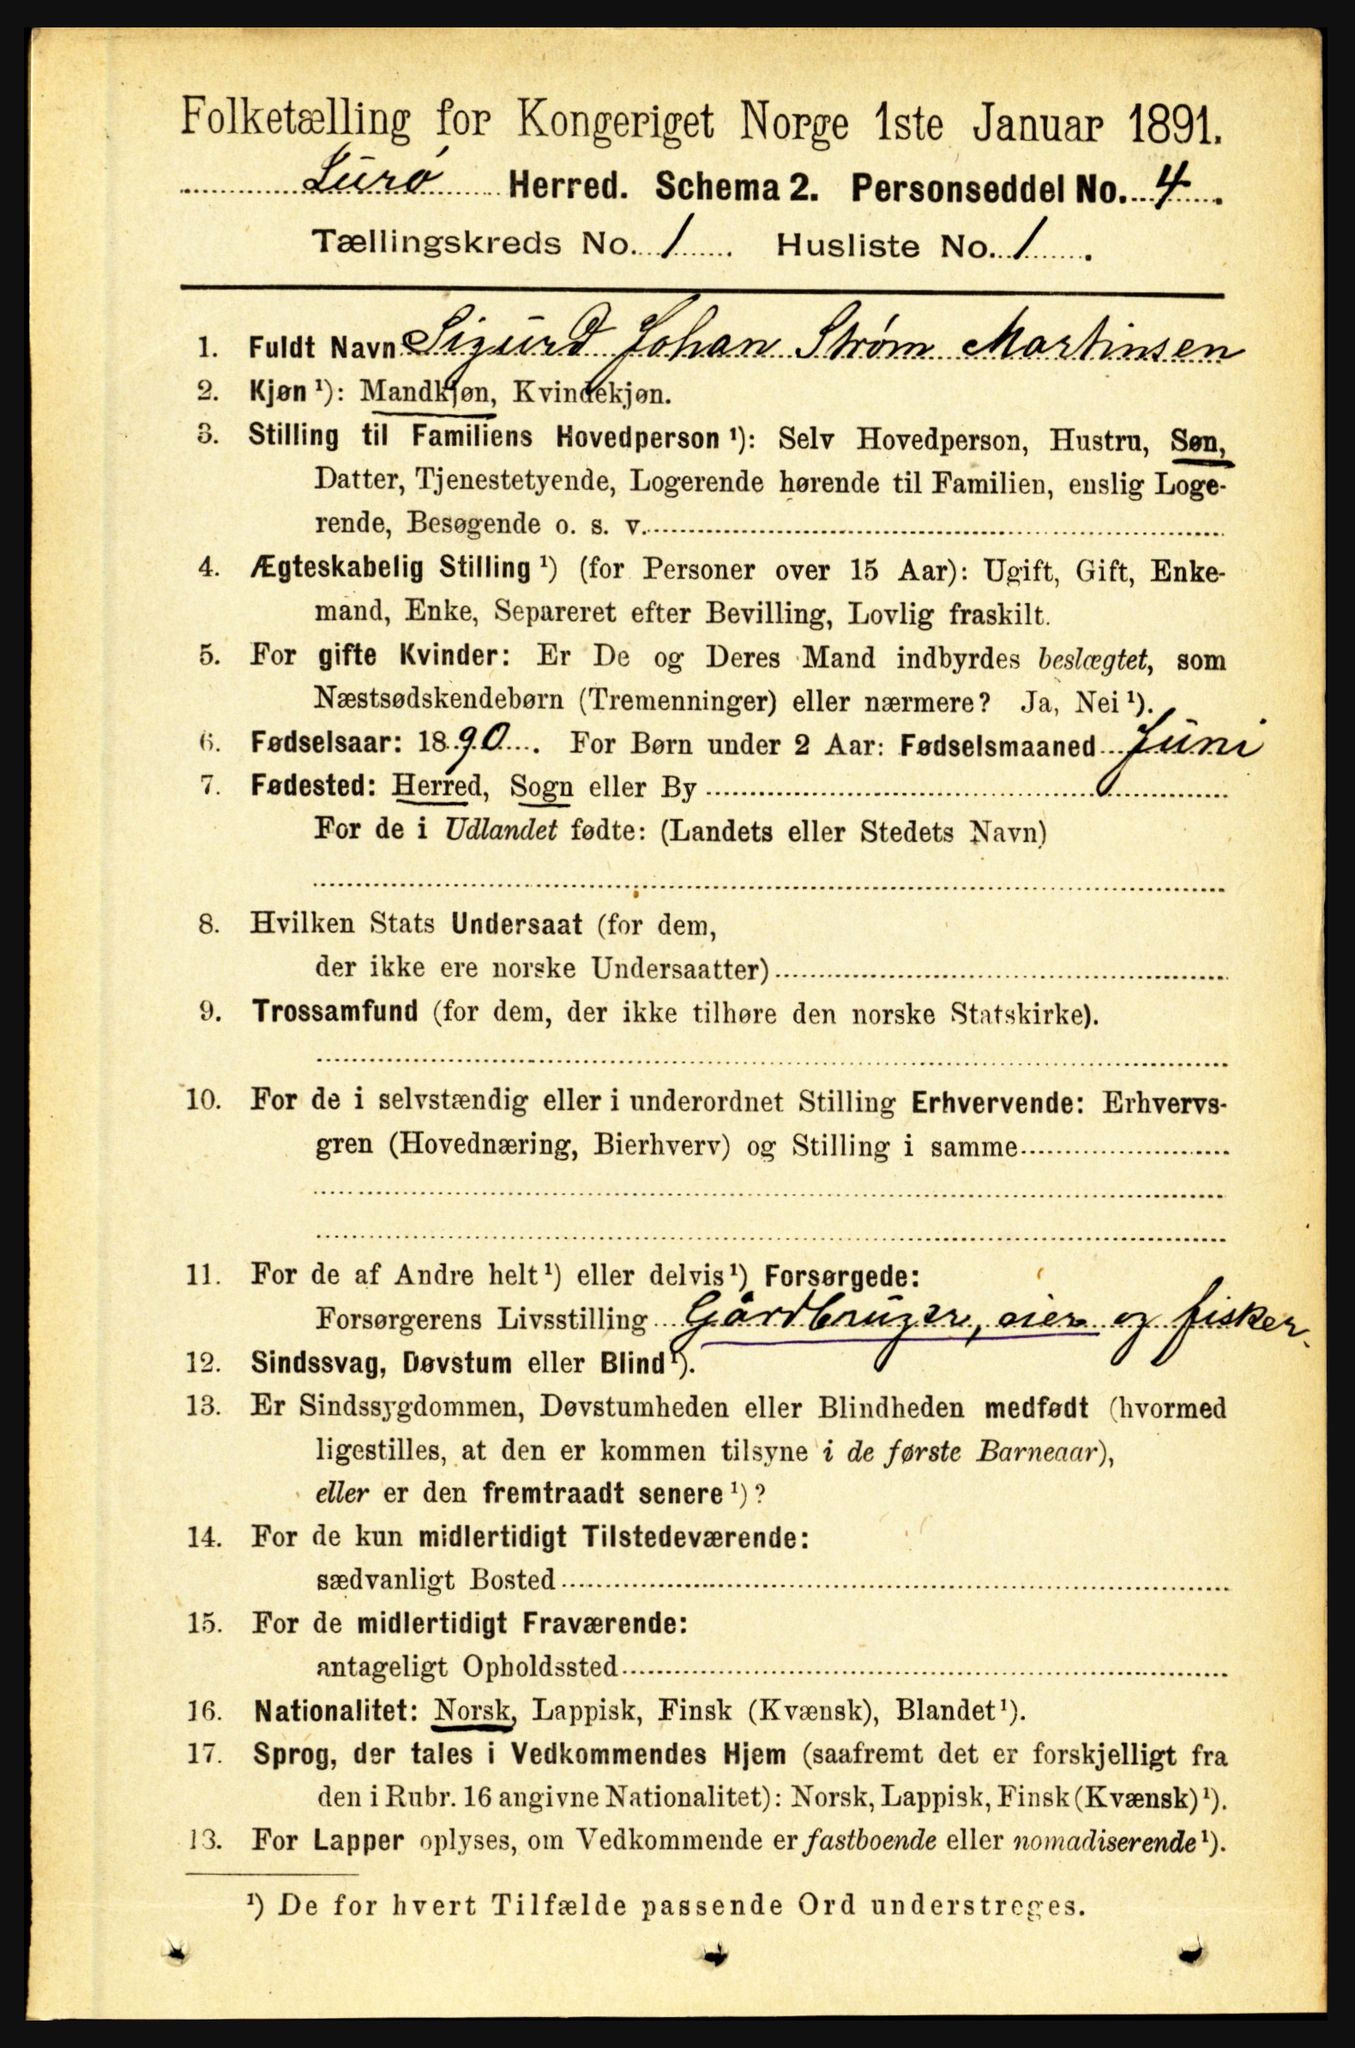 Folketælling for Kongeriget Norge 1ste Januar 1891.
Lurø Herred. Schema 2. Personseddel No. 4.
Tællingskreds No. 1. Husliste No. 1.
1. Fuldt Navn Sigurd Johan Strøm Martinsen
2. Kjøn ¹): Mandkjøn, Kvindekjøn.
3. Stilling til Familiens Hovedperson ¹): Selv Hovedperson, Hustru, Søn,
Datter, Tjenestetyende, Logerende hørende til Familien, enslig Loge-
rende, Besøgende o. s. v.
4. Ægteskabelig Stilling ¹) (for Personer over 15 Aar): Ugift, Gift, Enke-
mand, Enke, Separeret efter Bevilling, Lovlig fraskilt.
5. For gifte Kvinder: Er De og Deres Mand indbyrdes beslægtet, som
Næstsødskendebørn (Tremenninger) eller nærmere? Ja, Nei ¹).
6. Fødselsaar: 1890. For Børn under 2 Aar: Fødselsmaaned Juni
7. Fødested: Herred, Sogn eller By
For de i Udlandet fødte: (Landets eller Stedets Navn)
8. Hvilken Stats Undersaat (for dem,
der ikke ere norske Undersaatter)
9. Trossamfund (for dem, der ikke tilhøre den norske Statskirke).
10. For de i selvstændig eller i underordnet Stilling Erhvervende: Erhvervs-
gren (Hovednæring, Bierhverv) og Stilling i samme
11. For de af Andre helt ¹) eller delvis ¹) Forsørgede:
Forsørgerens Livsstilling Gårdbruger, eier og fisker.
12. Sindssvag, Døvstum eller Blind ¹).
13. Er Sindssygdommen, Døvstumheden eller Blindheden medfødt (hvormed
ligestilles, at den er kommen tilsyne i de første Barneaar),
eller er den fremtraadt senere ¹)?
14. For de kun midlertidigt Tilstedeværende:
sædvanligt Bosted
15. For de midlertidigt Fraværende:
antageligt Opholdssted
16. Nationalitet: Norsk, Lappisk, Finsk (Kvænsk), Blandet ¹).
17. Sprog, der tales i Vedkommendes Hjem (saafremt det er forskjelligt fra
den i Rubr. 16 angivne Nationalitet): Norsk, Lappisk, Finsk (Kvænsk) ¹).
13. For Lapper oplyses, om Vedkommende er fastboende eller nomadiserende ¹).
¹) De for hvert Tilfælde passende Ord understreges.